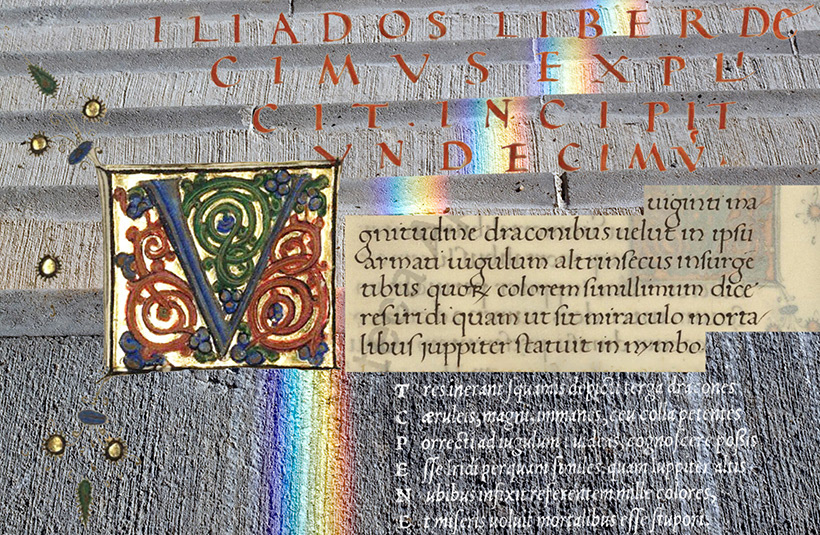 ILIADOS LIBER DE
CIMVS EXPLI
CIT. INCIPIT
VNDECIMV.
V
uiginti ma
gnitudine draconibus uelut in ipsu
armati iugulum altrinsecus insurge
tibus quoꝝ colorem simillimum dice
res iridi quam ut sit miraculo morta
libus juppiter statuit in nymbo.
Tres inerant squamis depicti terga dracones
Cæruleis, magni, immanes, ceu colla petentes
Porrecti ad iugulum: uables, cognoscere possis
Esse iridi perquam similes, quam Iuppiter altis
Nubibus infixit referentem mille colores,
Et miseris uoluit mortalibus esse stupori.